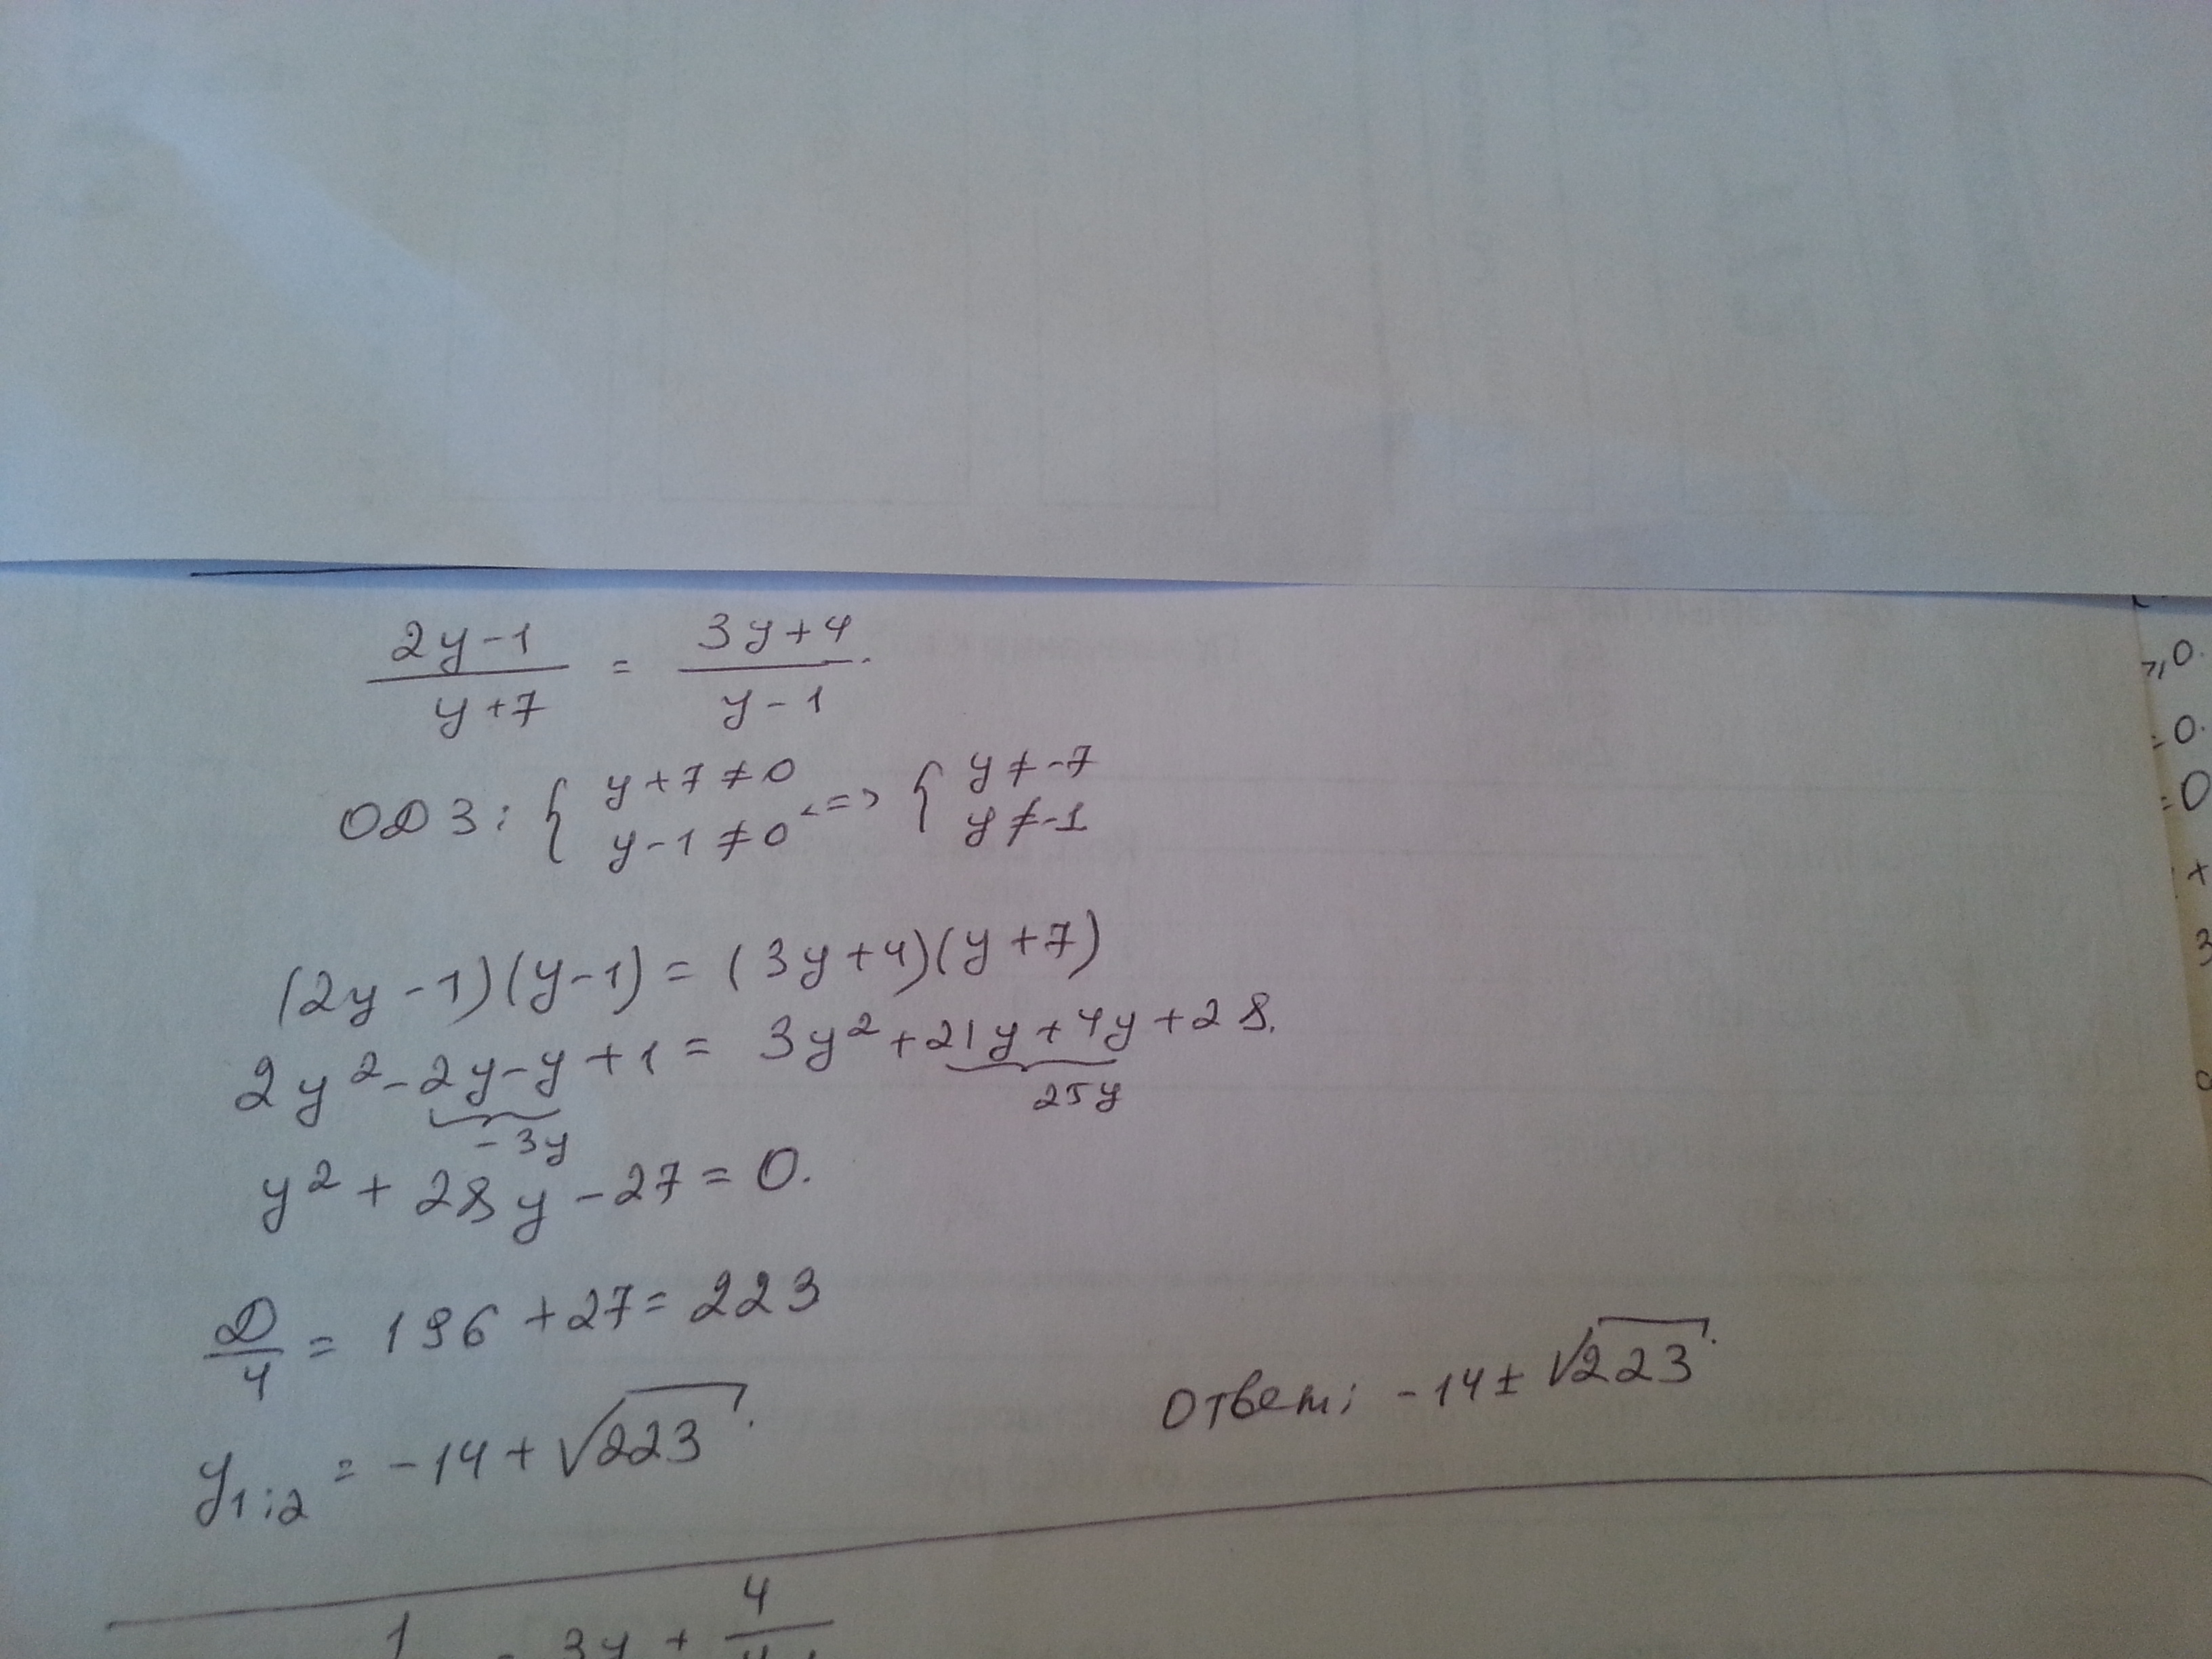 (2y-1)/(y+7) = (3y+4)/(y-1).
ОДЗ: { y+7≠0 <=> { y≠-7
y-1≠0 y≠-1
(2y-1)(y-1) = (3y+4)(y+7)
2y²-2y-y+1 = 3y²+21y+4y+28.
-3y 25y
y²+28y-27=0.
Д/4 = 196+27=223
y₁;₂ = -14+√223.
Ответ: -14±√223.
1
= 3y + 4
≥0.
=0.
=0
+
3